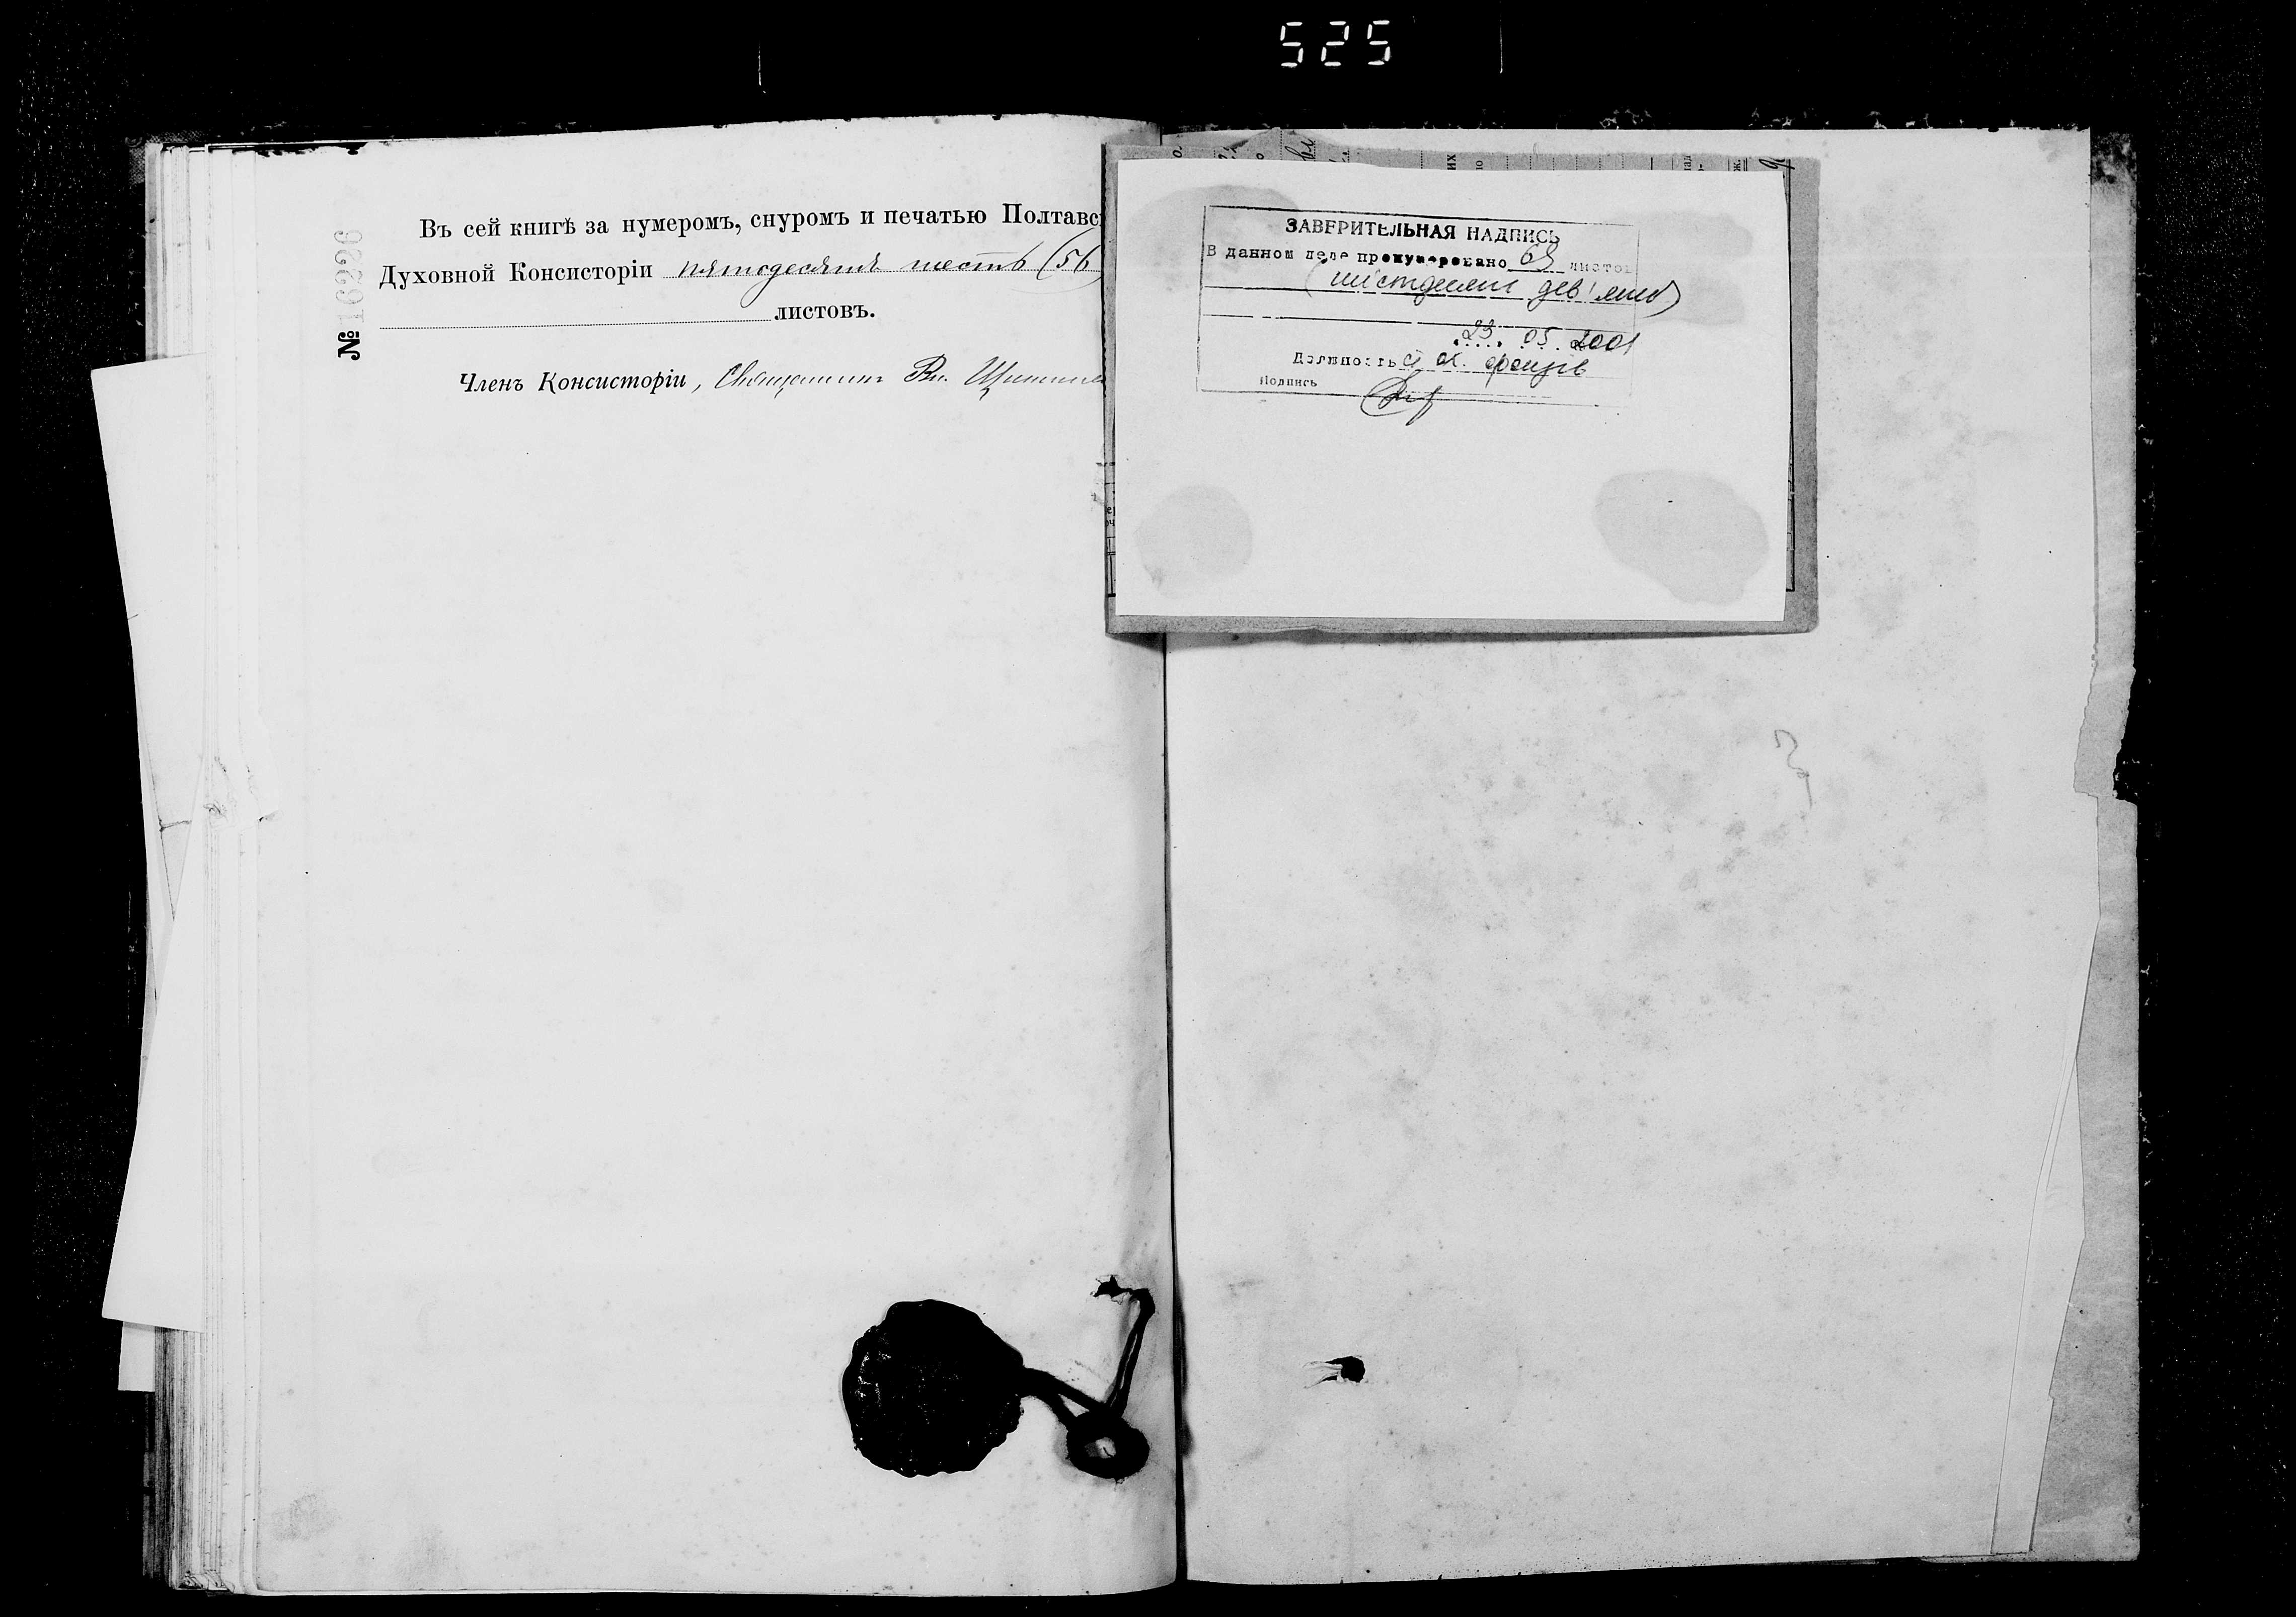 525
Въ сей книгѣ за нумеромъ, снуромъ и печатью Полтавс
Духовной Консисторіи пятодесятъ шесть (56)
листовъ.
№ 16226
Членъ Консисторіи, Священникъ Вл.
ЗАВЕРИТЕЛЬНАЯ НАДПИСЬ
В данном деле пронумеровано 69 листов
(шістдесят дев'ять)
23. 05. 2001
Должность
Подпись